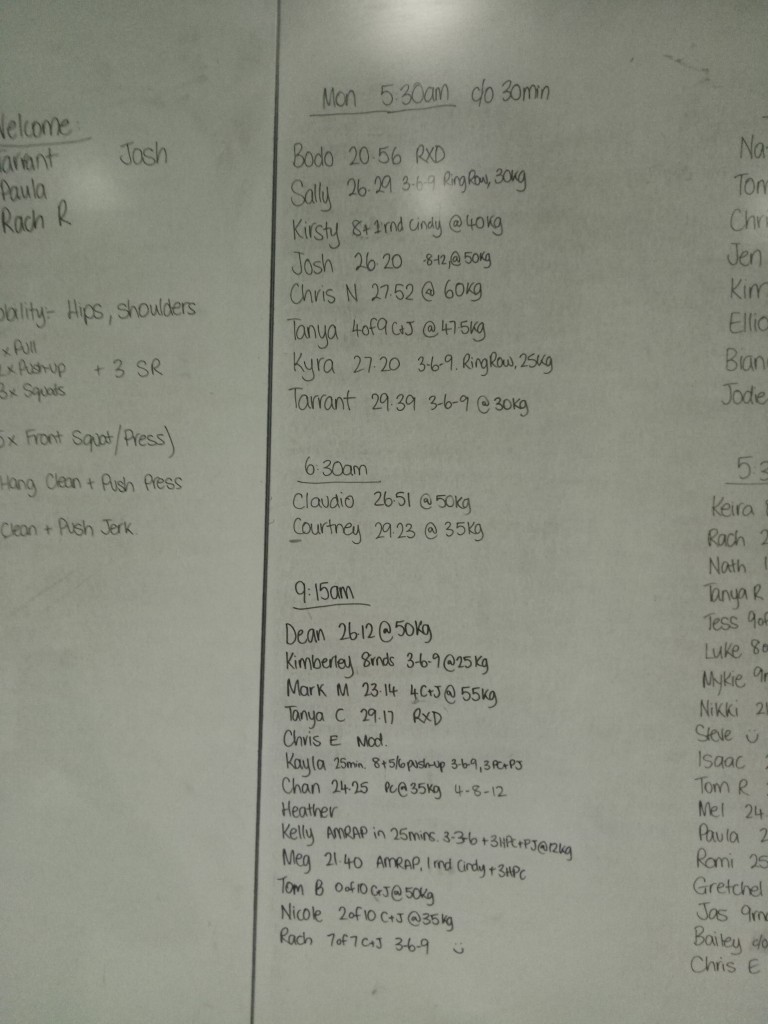 Welcome:
Tarrant Josh
Paula
Rach R
Hips, shoulders
x Pull
2x Push-up + 3 SR
3x Squats
5x Front Squat/Press)
Hang Clean + Push Press
Clean + Push Jerk
Mon 5:30am c/o 30min
Bodo 20.56 RXD
Sally 26.29 3-6-9 Ring Row, 30kg
Kirsty 8+1rnd Cindy @ 40kg
Josh 26.20 8-12,@50kg
Chris N 27.52 @ 60kg
Tanya 4of9 C+J @ 47.5kg
Kyra 27.20 3-6-9. Ring Row, 25kg
Tarrant 29.39 3-6-9 @ 30kg
6:30am
Claudio 26.51 @ 50kg
Courtney 29.23 @ 35kg
9:15am
Dean 26.12 @ 50kg
Kimberley 8rnds 3-6-9 @ 25kg
Mark M 23.14 4C+J @ 55kg
Tanya C 29.17 RXD
Chris E Mod.
Kayla 25min. 8+5/6 push-up 3-6-9, 3PC+PJ
Chan 24.25 PC@35kg 4-8-12
Heather
Kelly AMRAP in 25mins. 3-3-6 + 3HPC+PJ@12kg
Meg 21.40 AMRAP, 1rnd Cindy + 3HPC
Tom B 0of10 C+J@50kg
Nicole 2of10 C+J @35kg
Rach 7of7 C+J 3-6-9
Na
Tom
Chri
Jen
Kim
Ellio
Bian
Jode
5:3
Keira
Rach 2
Nath
Tanya R
Tess 9of
Luke 8o
Mykie 9r
Nikki 2
Steve
Isaac
Tom R
Mel 24
Paula 2
Romi 25
Gretchel
Jas 9rn
Bailey c/o
Chris E